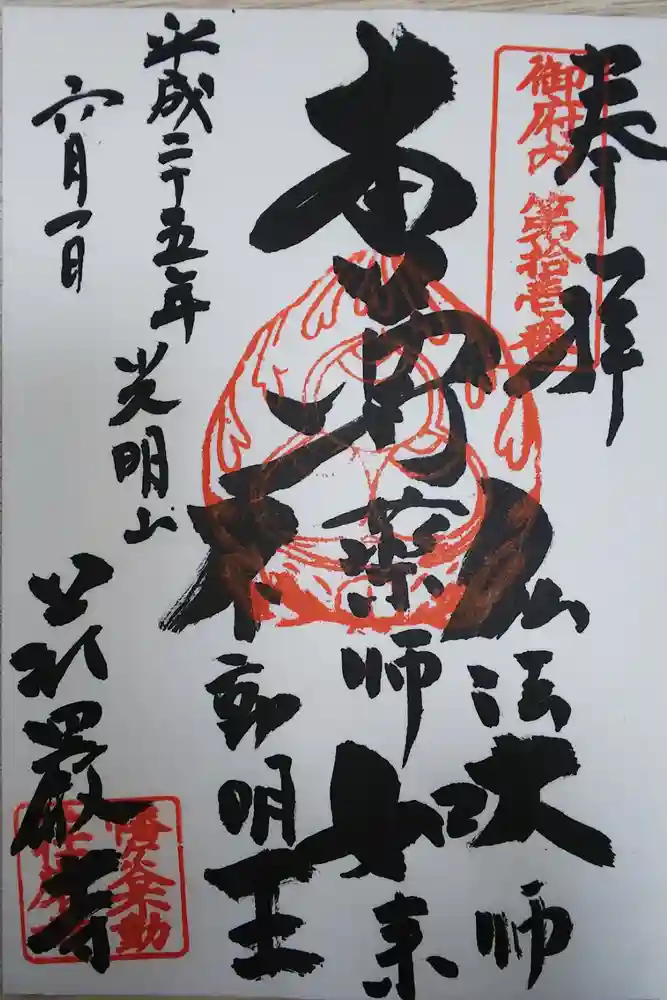 奉拝
御府内 第拾壱番
弘法大師
本尊
薬師如来
不動明王
平成二十五年
六月一日
光明山
荘嚴寺
幡谷不動